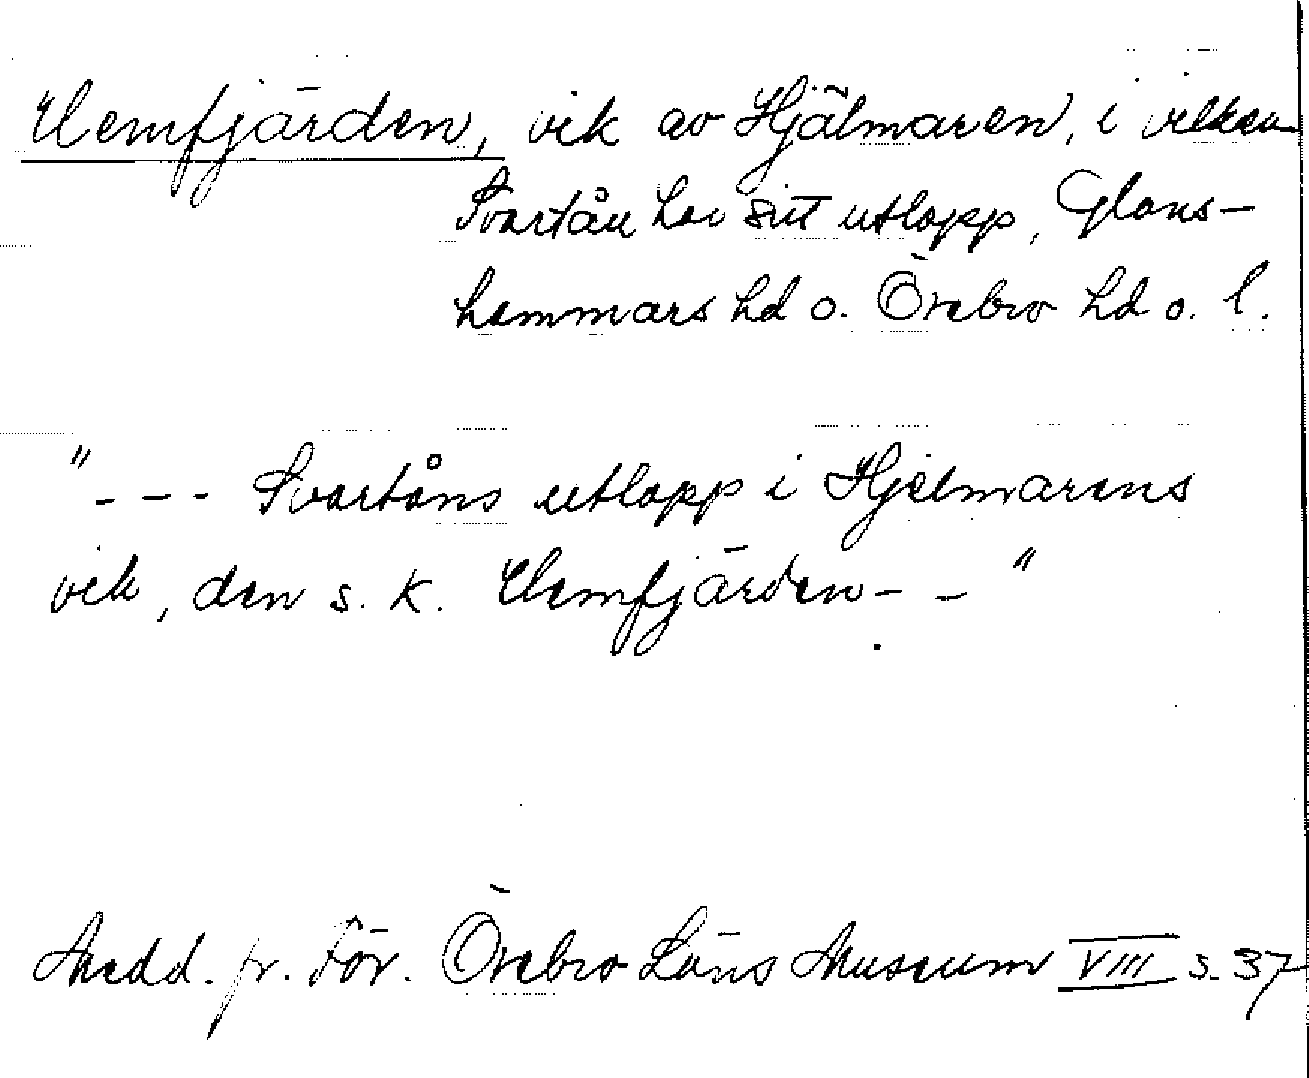 Hemfjärden, vik av Hjälmaren, i vilken
Svartån har sitt utlopp, Glans-
hammars hd o. Örebro hd o. l.
"--- Svartåns utlopp i Hjelmarens
vik, den s. k. Hemfjärden--"
Medd. fr. För. Örebro Läns Museum VIII s. 37